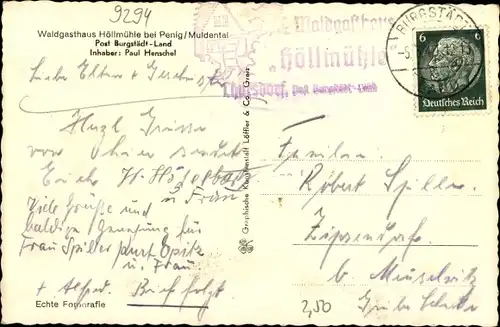 9294
Waldgasthaus Höllmühle bei Penig/Muldental
Post Burgstädt-Land
Inhaber: Paul Henschel
Waldgasthaus
"Höllmühle
Post Burgstädt-Land
BURGSTÄDT
6 6
Deutsches Reich
Liebe Eltern u Geschw.
Herzl Grüsse
von hier sendet
Euch H.
u Frau
Viele Grüße und
baldige Genesung für
Frau Spiller Kurt Opitz
u. Frau
+ Alfred. Brief folgt
Echte Fotografie
Graphische Kunstanstalt Löffler & Co., Greiz
Familie
Robert Spiller
b.
2,50